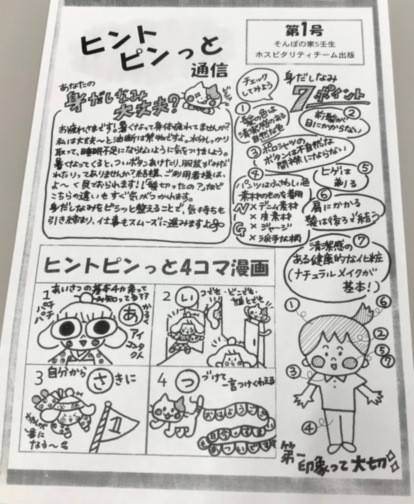 ヒント
ピンっと
通信
第1号
そんぽの家S壬生
ホスピタリティチーム出版
あなたの
身だしなみ
大丈夫？
お疲れさまです！暑くなって身体疲れてませんか？
私は大丈夫〜と油断は禁物ですよ。水分しっかり
取って、睡眠不足にならないように気をつけましょう
暑くなってくると、ついボタンあけたり、服装がみだ
れたりってありませんか？結構、ご利用者様は、
よ〜く見ておられます！
こちらの違いもすぐ気がつかれます。
身だしなみをピシッと整えることで、気持ちも
引き締まり、仕事もスムーズに進みますよ
チェック
してみよう
身だしなみ
7ポイント
①
髪の色は
清潔感のある
自然な色
②
前髪が
目にかからない
③
ポロシャツの
ボタンを不自然な
開襟にはしない
④
パンツはふさわしい
素材のものを着用
×デニム素材
×皮素材
×ジャージ
×派手な柄
⑤
ヒゲは
剃る
⑥
肩にかかる
髪は後ろで結う
⑦
清潔感の
ある健康的な化粧
（ナチュラルメイクが
基本！）
ヒントピンっと4コマ漫画
1
あいさつの基本4か条って
パチ
パチ
あ
かるく
アイ
コンタク
ト
2
い
つでも
どこでも
3
自分から
さ
きに
4
つ
づけて
一言つけくわえる
①
②
③
④
⑤
⑥
⑦
第一
印象って大切